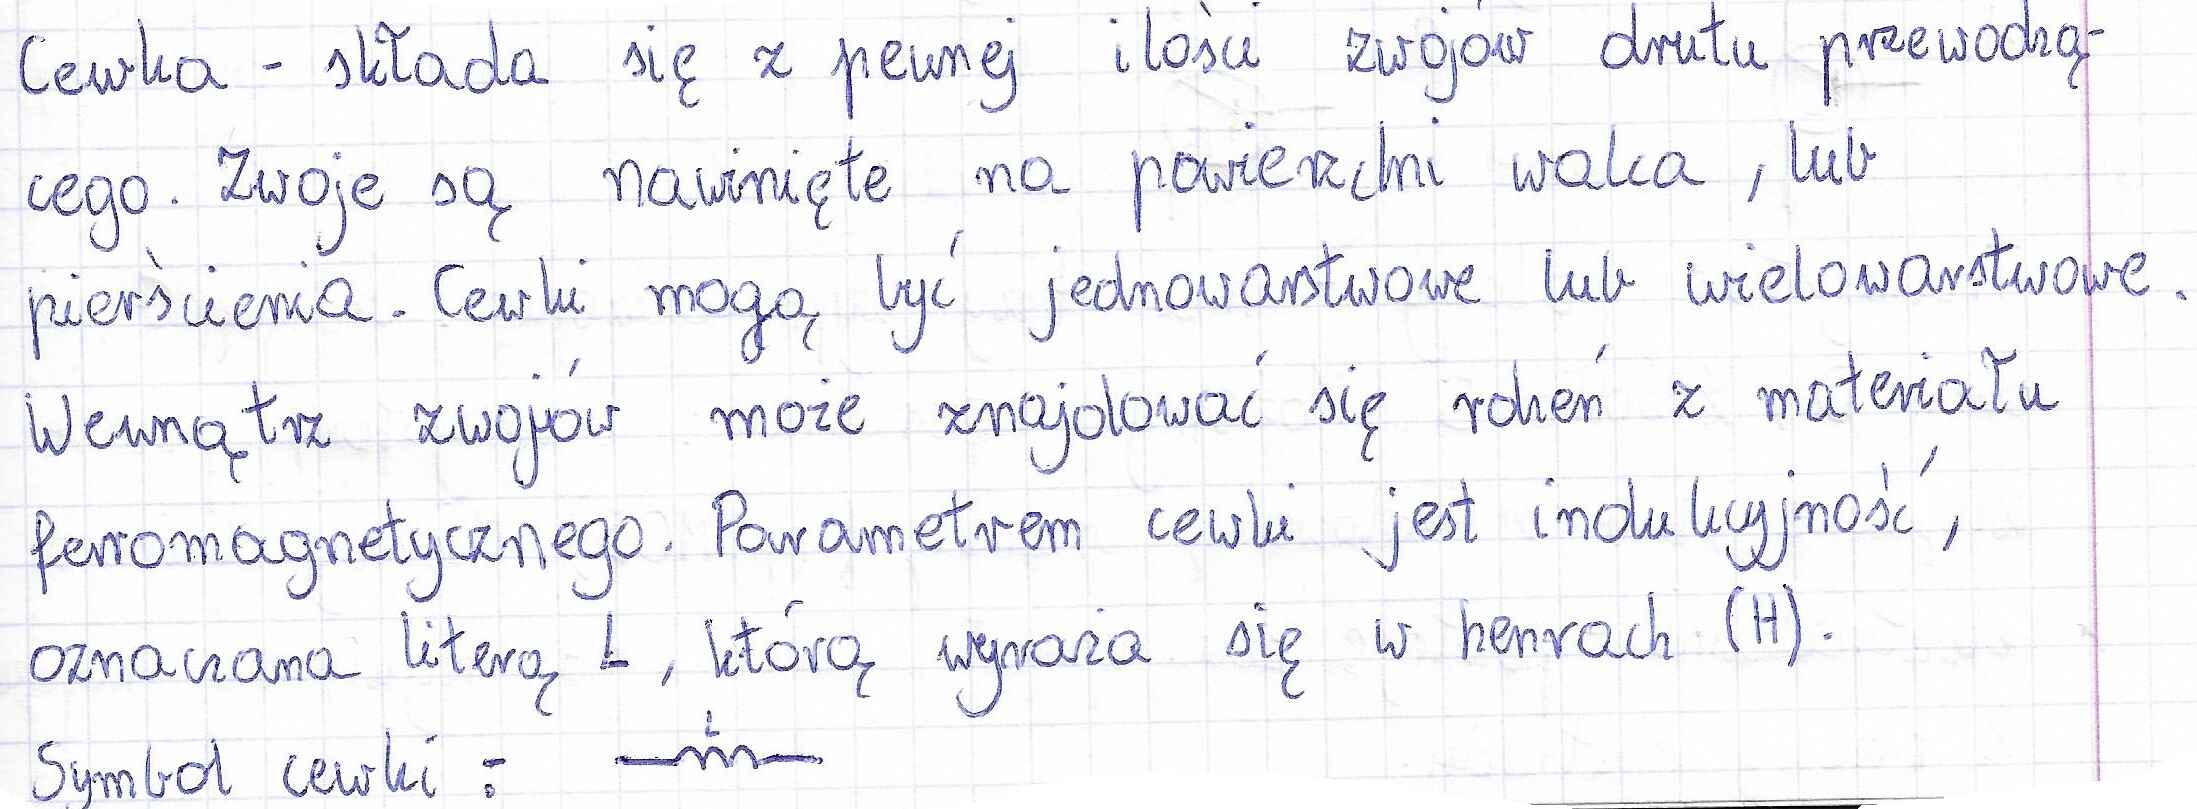 Cewka - składa się z pewnej ilości zwojów drutu przewodzą-
cego. Zwoje są nawinięte na powierzchni walca, lub
pierścienia. Cewki mogą być jednowarstwowe lub wielowarstwowe.
Wewnątrz zwojów może znajdować się rdzeń z materiału
ferromagnetycznego. Parametrem cewki jest indukcyjność,
oznaczana literą L, którą wyraża się w henrach (H).
Symbol cewki: L